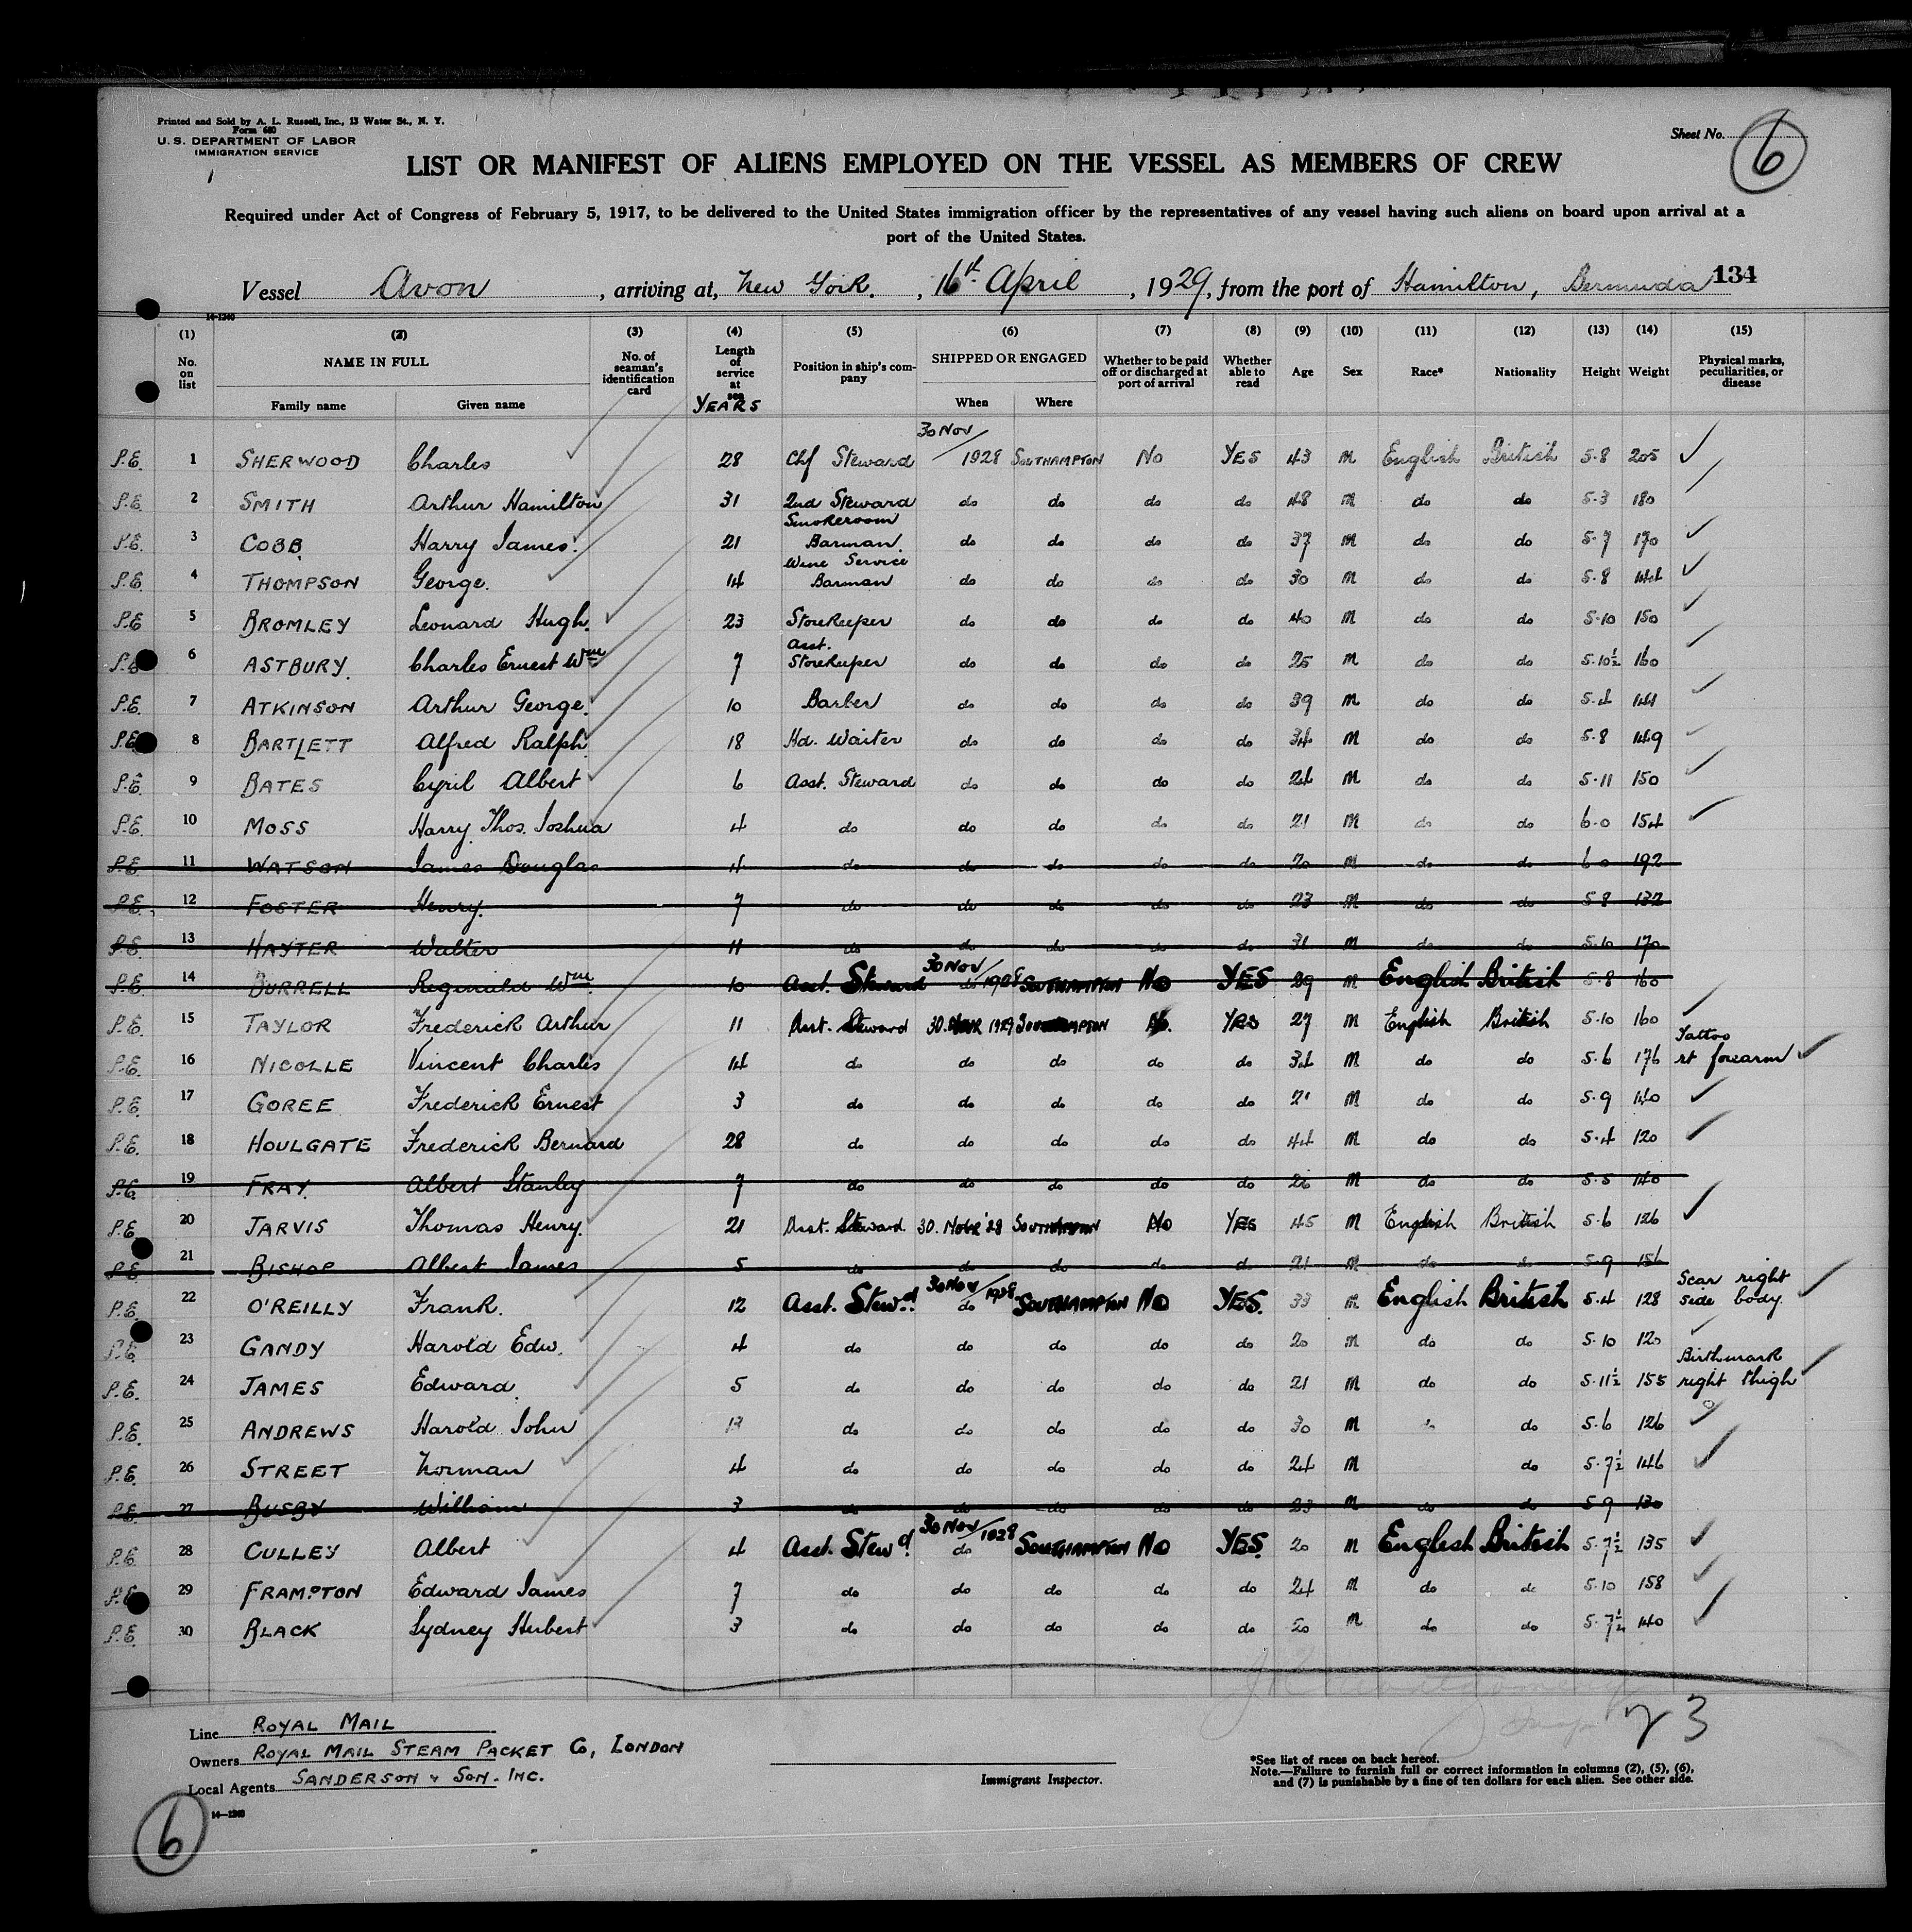 Printed and Sold by A. L. Russell, Inc., 13 Water St., N. Y.
Form 680
U. S. DEPARTMENT OF LABOR
IMMIGRATION SERVICE
Sheet No. 6
LIST OR MANIFEST OF ALIENS EMPLOYED ON THE VESSEL AS MEMBERS OF CREW
Required under Act of Congress of February 5, 1917, to be delivered to the United States immigration officer by the representatives of any vessel having such aliens on board upon arrival at a
port of the United States.
Vessel Avon, arriving at, New York, 16th April, 1929, from the port of Hamilton, Bermuda 134
14-1240
(1) (2) (3) (4) (5) (6) (7) (8) (9) (10) (11) (12) (13) (14) (15)
No. on list NAME IN FULL No. of seaman's identification card Length of service at sea Position in ship's company SHIPPED OR ENGAGED Whether to be paid off or discharged at port of arrival Whether able to read Age Sex Race* Nationality Height Weight Physical marks, peculiarities, or disease
Family name Given name YEARS When Where
P.E. 1 SHERWOOD Charles 28 Chf Steward 30 Nov/1928 SOUTHAMPTON No YES 43 M English British 5-8 205
P.E. 2 SMITH Arthur Hamilton 31 2nd Steward do do do do 48 M do do 5-3 180
P.E. 3 COBB Harry James. 21 Smokeroom Barman do do do do 37 M do do 5-7 170
P.E. 4 THOMPSON George. 14 Wine Service Barman do do do do 30 M do do 5-8 144
P.E. 5 BROMLEY Leonard Hugh. 23 Storekeeper do do do do 40 M do do 5-10 150
P.E. 6 ASTBURY. Charles Ernest Wm 7 Asst. Storekeeper do do do do 25 M do do 5-10½ 160
P.E. 7 ATKINSON Arthur George. 10 Barber do do do do 39 M do do 5-4 144
P.E. 8 BARTLETT Alfred Ralph 18 Hd. Waiter do do do do 34 M do do 5-8 149
P.E. 9 BATES Cyril Albert 6 Asst. Steward do do do do 24 M do do 5-11 150
P.E. 10 MOSS Harry Thos. Joshua 4 do do do do do 21 M do do 6-0 154
P.E. 11 WATSON James Douglas 4 do do do do do 20 M do do 6-0 192
P.E. 12 FOSTER Henry. 7 do do do do do 23 M do do 5-8 132
P.E. 13 HAYTER Walter 11 do do do do do 31 M do do 5-10 170
P.E. 14 BURRELL Reginald Wm. 10 Asst. Steward 30 Nov/1928 SOUTHAMPTON No YES 29 M English British 5-8 160
P.E. 15 TAYLOR Frederick Arthur 11 Asst. Steward 30. 1929 SOUTHAMPTON No YES 27 M English British 5-10 160
P.E. 16 NICOLLE Vincent Charles 14 do do do do do 34 M do do 5-6 176 Tattoo rt forearm
P.E. 17 GOREE Frederick Ernest 3 do do do do do 21 M do do 5-9 140
P.E. 18 HOULGATE Frederick Bernard 28 do do do do do 44 M do do 5-4 120
P.E. 19 FRAY. Albert Stanley 7 do do do do do 26 M do do 5-5 140
P.E. 20 JARVIS Thomas Henry. 21 Asst. Steward 30. Novr '28 SOUTHAMPTON No YES 45 M English British 5-6 126
P.E. 21 BISHOP Albert James 5 do do do do do 21 M do do 5-9 156
P.E. 22 O'REILLY Frank. 12 Asst. Stewd 30 Nov/1928 do SOUTHAMPTON No YES. 33 M English British 5-4 128 Scar right side body.
P.E. 23 GANDY Harold Edw. 4 do do do do do 20 M do do 5-10 120
P.E. 24 JAMES Edward. 5 do do do do do 21 M do do 5-11½ 155 Birthmark right thigh
P.E. 25 ANDREWS Harold John do do do do do 30 M do do 5-6 126
P.E. 26 STREET Norman 4 do do do do do 24 M do 5-7½ 146
P.E. 27 BUSBY William 3 do do do do do 23 M do do 5-9 130
P.E. 28 CULLEY Albert 4 Asst. Stewd. 30 Nov/1928 do SOUTHAMPTON No YES. 20 M English British 5-7½ 135
P.E. 29 FRAMPTON Edward James 7 do do do do do 24 M do do 5-10 158
P.E. 30 BLACK Sydney Hubert 3 do do do do do 20 M do do 140
23
Line ROYAL MAIL
Owners ROYAL MAIL STEAM PACKET Co, LONDON
Local Agents SANDERSON & SON. INC.
Immigrant Inspector.
*See list of races on back hereof.
Note.—Failure to furnish full or correct information in columns (2), (5), (6),
and (7) is punishable by a fine of ten dollars for each alien. See other side.
14—1240
6